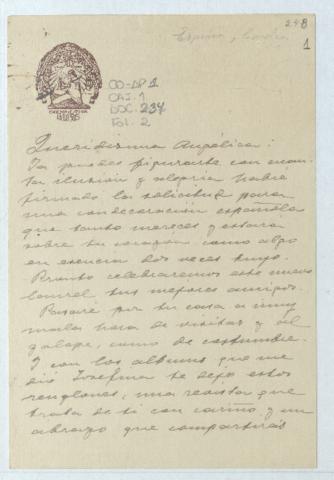 248
España, Condec.
1
CO-AP 1
CAJ. 1
DOC. 234
FOL. 2
Queridísima Angélica:
Ya puedes figurarte con cuan-
ta ilusión y alegría habré
firmado la solicitud para
una condecoración española
que tanto mereces y estará
sobre tu corazón como algo
en esencia dos veces tuyo.
Pronto celebraremos este nuevo
laurel, tus mejores amigos.
Pasaré por tu casa a muy
mala hora de visitas y al
galope, como de costumbre.
Y con los albums que me
dió Josefina te dejo estos
renglones, una revista que
trata de ti con cariño y un
abrazo que compartirás